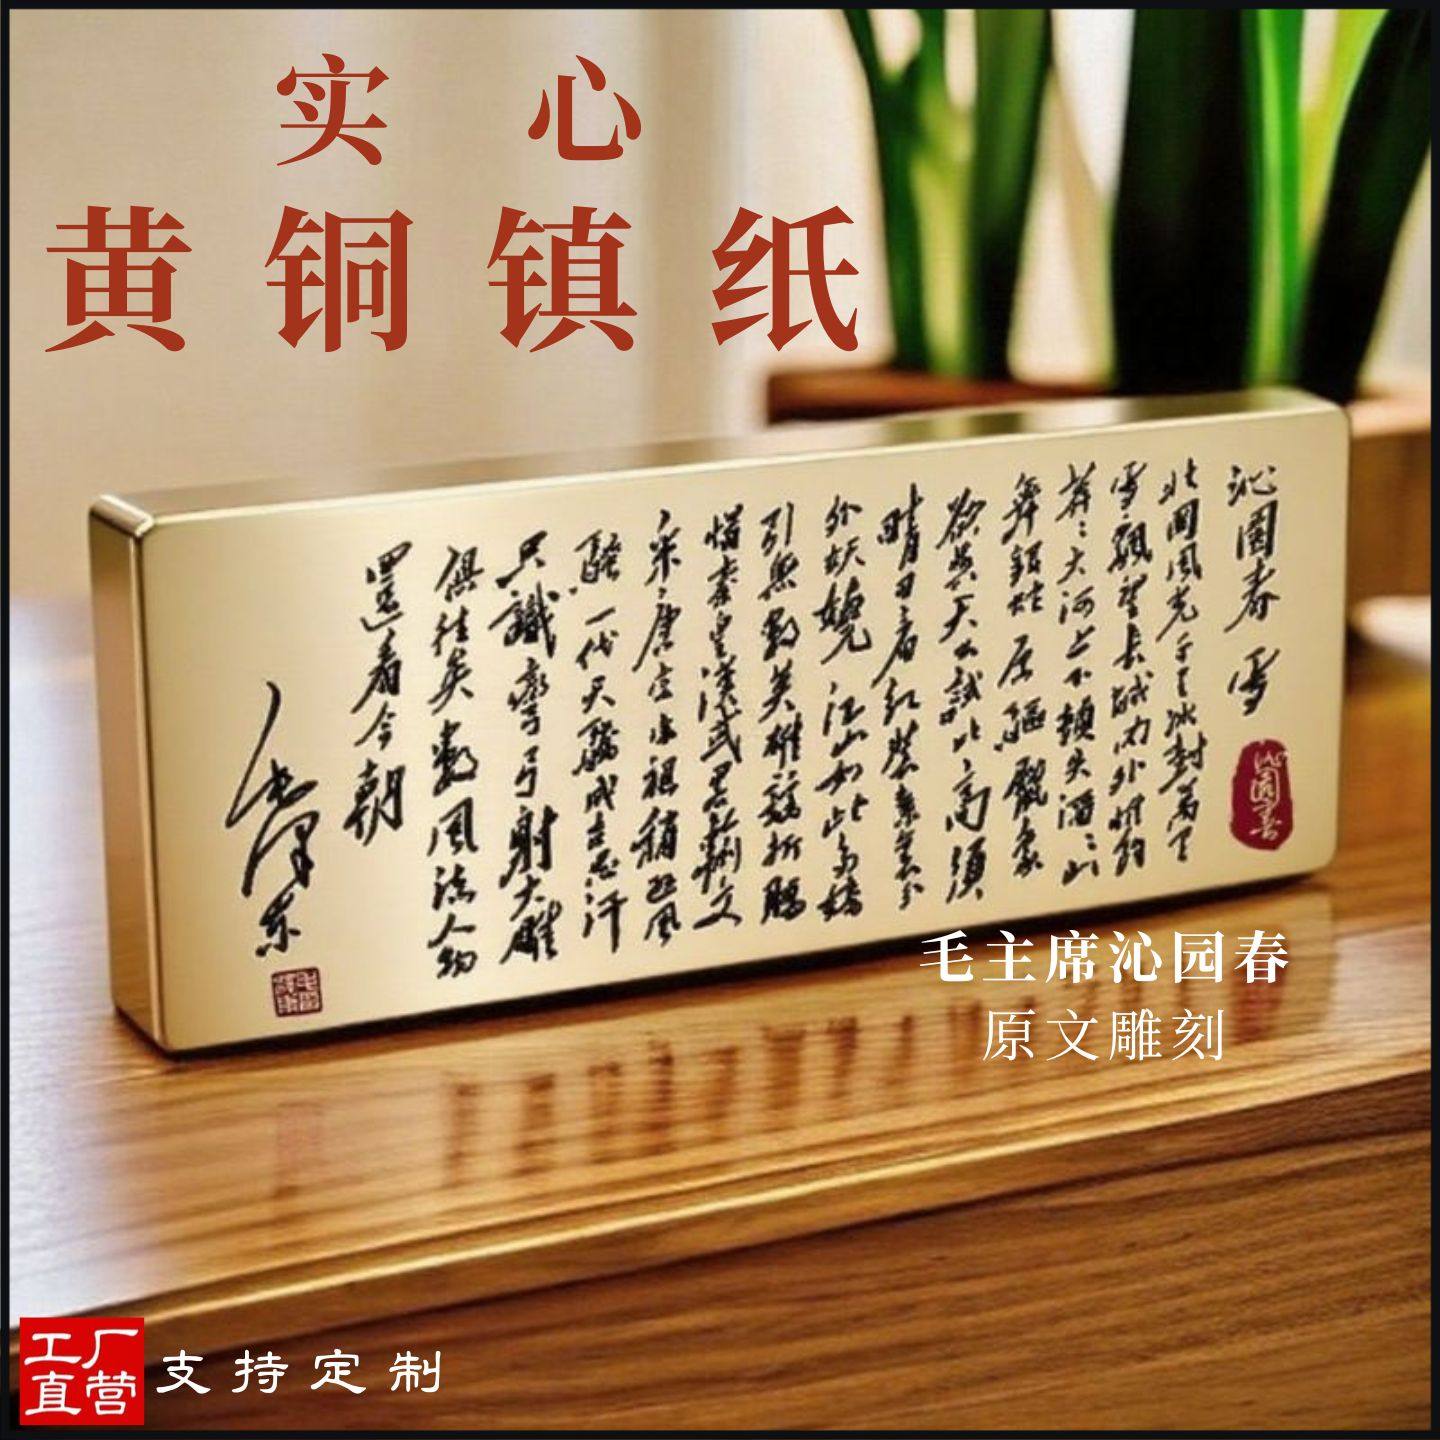 实心
黄铜镇纸
沁園春 雪
沁園春
北國風光千里冰封萬里
雪飄望長城内外惟餘
莽〻大河上下頓失滔〻山
舞銀蛇原驅臘象
欲與天公試比高須
晴日看紅裝素裹分
外妖嬈江山如此多嬌
引無數英雄競折腰
惜秦皇漢武略輸文
采唐宗宋祖稍遜風
騷一代天驕成吉思汗
只識彎弓射大雕
俱往矣數風流人物
還看今朝
毛澤東
毛主席沁园春
原文雕刻
工厂
直营
支持定制